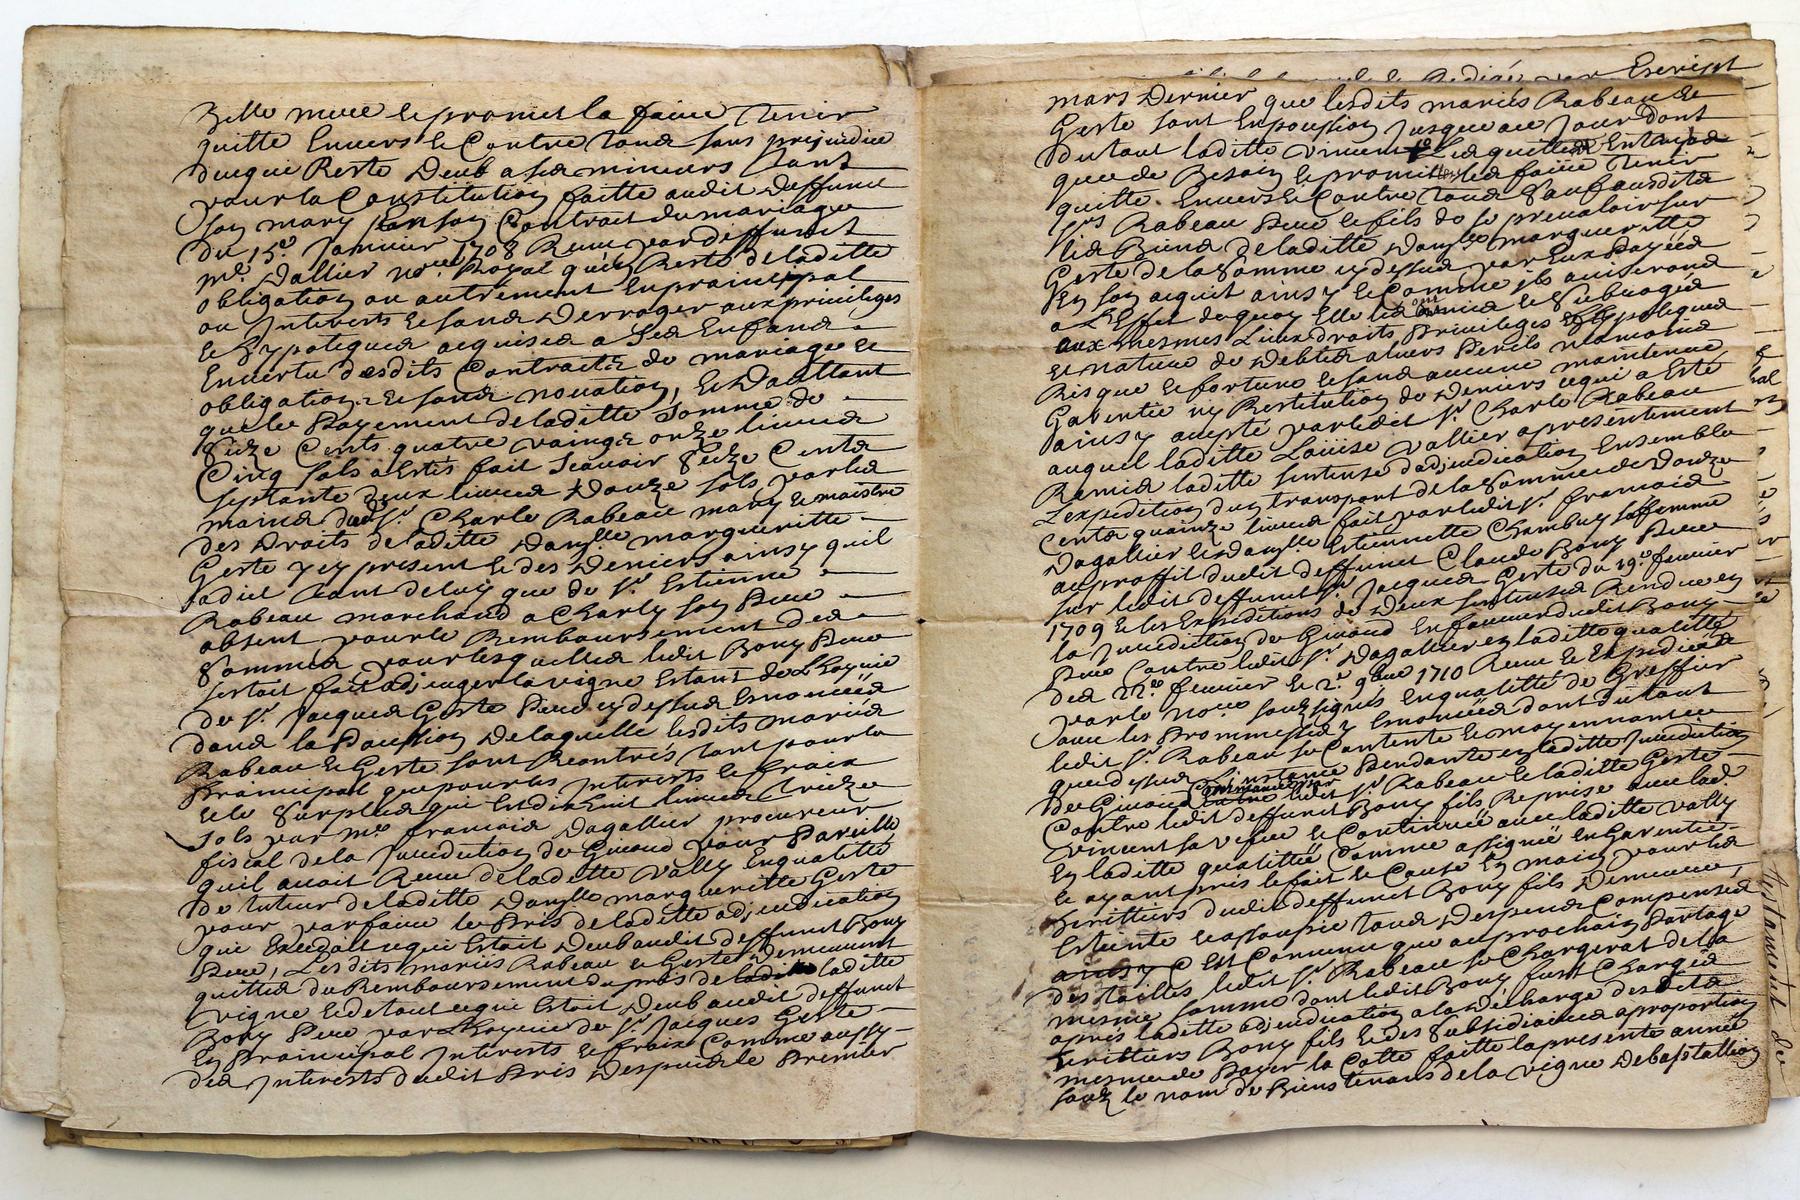 Belle mere et promet la faire Tenir
quitte Envers et Contre Tous sans prejudice
du qui Reste Deub a ses mineurs tant
pour la Constitution faitte audit deffunct
son mary par son Contrait du mariage
du 15e Janvier 1708 Receu par deffunct
me Dallier nore Royal qu'en Reste de laditte
obligation ou autrement En prainsipal
ou Interests et sans Derroger aux privileges
et hypoteques acquises a Ses Enfans
En vertu desdits Contraits de mariage et
obligation et sans novation, et D'aultant
que le Payement de laditte Somme de
Seize Cents quatre vaings onze livres
Cinq sols a Estés fait Scavoir Seize Cents
septante deux livres Douze sols par les
mains dud Sr. Charle Rabeau mary et maistre
des Droits de laditte Danylle margueritte
Geste y ey present et des Deniers ainsy quil
adit tant de luy que de Sr. Estienne
Rabeau marchand a Charly son Pere
absent pour le Remboursement des
Sommes pour lesquelles ledit Bony Pere
sestoit fait adjuger la vigne Estant de L'hoyrie
de Sr. Jacques Geste Pere cy dessus Enoncées
dans la Possession De laquelle lesdits mariés
Rabeau et Geste sont Reentrés tant pour le
Prainsipal que pour les Interests et fraix
et le Surplus qui Est dix huit livres treize
sols par me francois Dagallier procureur
fiscal de la Juridiction de Givord pour Pareille
quil avoit Receu de laditte Vally En qualitté
de tuteur de laditte Danylle margueritte Geste
pour parfaire le Pris de laditte adjudication
qui Excedoit ce qui Estoit Deub audit deffunct Bony
Pere, Lesdits mariés Rabeau et Geste Demeurent
quittes du Remboursement du pris de laditte
vigne et de tout ce qui Estoit Deub audit deffunct
Bony Pere par L'hoyrie de Sr. Jacques Geste
En Prainsipal Interests et fraix Comme aussy
des Interests dudit Pris Despuis le Premier
Escript
mars Dernier que lesdits mariés Rabeau et
Geste sont En possession Jusques au Jour dont
du tout laditte Vincent Les quitte Entant
que de Besoin et promet les faire Tenir
quitte Envers et Contre Tous Sauf ausdits
Srs Rabeau Pere et fils de se prevaloir sur
les Biens de laditte Danylle margueritte
Geste de la Somme cy dessus par Eux Payées
En son acquit ainsy et Comme ils aviseront
a L'Effet de quoy Elle les a mis et Subrogés
aux mesmes Lieux droits Privileges et hypoteques
et nature de Debtes a leurs Perils
Risque et fortune et sans aucune maintenue
Garentie ny Restitution de Deniers ce qui a Esté
ainsy accepté par ledit Sr. Charle Rabeau
auquel laditte Louise Vallier a presentement
Remis laditte sentense d'adjudication Ensemble
L'expedition du transport de la Somme de Douze
Cents quainze livres fait par ledit Sr. francois
Dagallier et Danylle Estiennette Chambuy sa femme
au proffit dudit deffunct Claude Bony Pere
sur ledit deffunct Sr. Jacques Geste du 19e fevrier
1709 et les Expeditions de Deux sentenses Rendues en
la Juridiction de Givord En faveur dudit Bony
Pere Contre ledit Sr. Dagallier en laditte qualitté
des 22e fevrier et 2e 9bre 1710 Receu et Expediées
par le nore soussignés En qualitté de Greffier
avec les Enoncées dont du tout
ledit Sr. Rabeau se Contente et moyennant ce
que dessus L'instance Pendante en laditte Juridiction
de Givord ledit Sr. Rabeau et laditte Geste
Contre ledit deffunct Bony fils Reprise avec lad
Vincent sa vefve et Continuée avec laditte Vally
En laditte qualittée Comme assignée En Garentie
et ayant pris le fait et Cause En main pour les
heritiers dudit deffunct Bony fils Demeure
Esteinte et assoupie tous Despens Compensés
ainsy C Est Convenu que au prochain Partage
des tailles ledit Sr. Rabeau se Chargerat de la
mesme somme dont ledit Bony fust Chargés
apres laditte adjudication a la Decharge desdits
heritiers Bony fils et des Subsidiaires a proportion
mesme de Payer la Cotte faitte la presente année
souz le nom de Biens tenans de la vigne Debastallion
Testament de